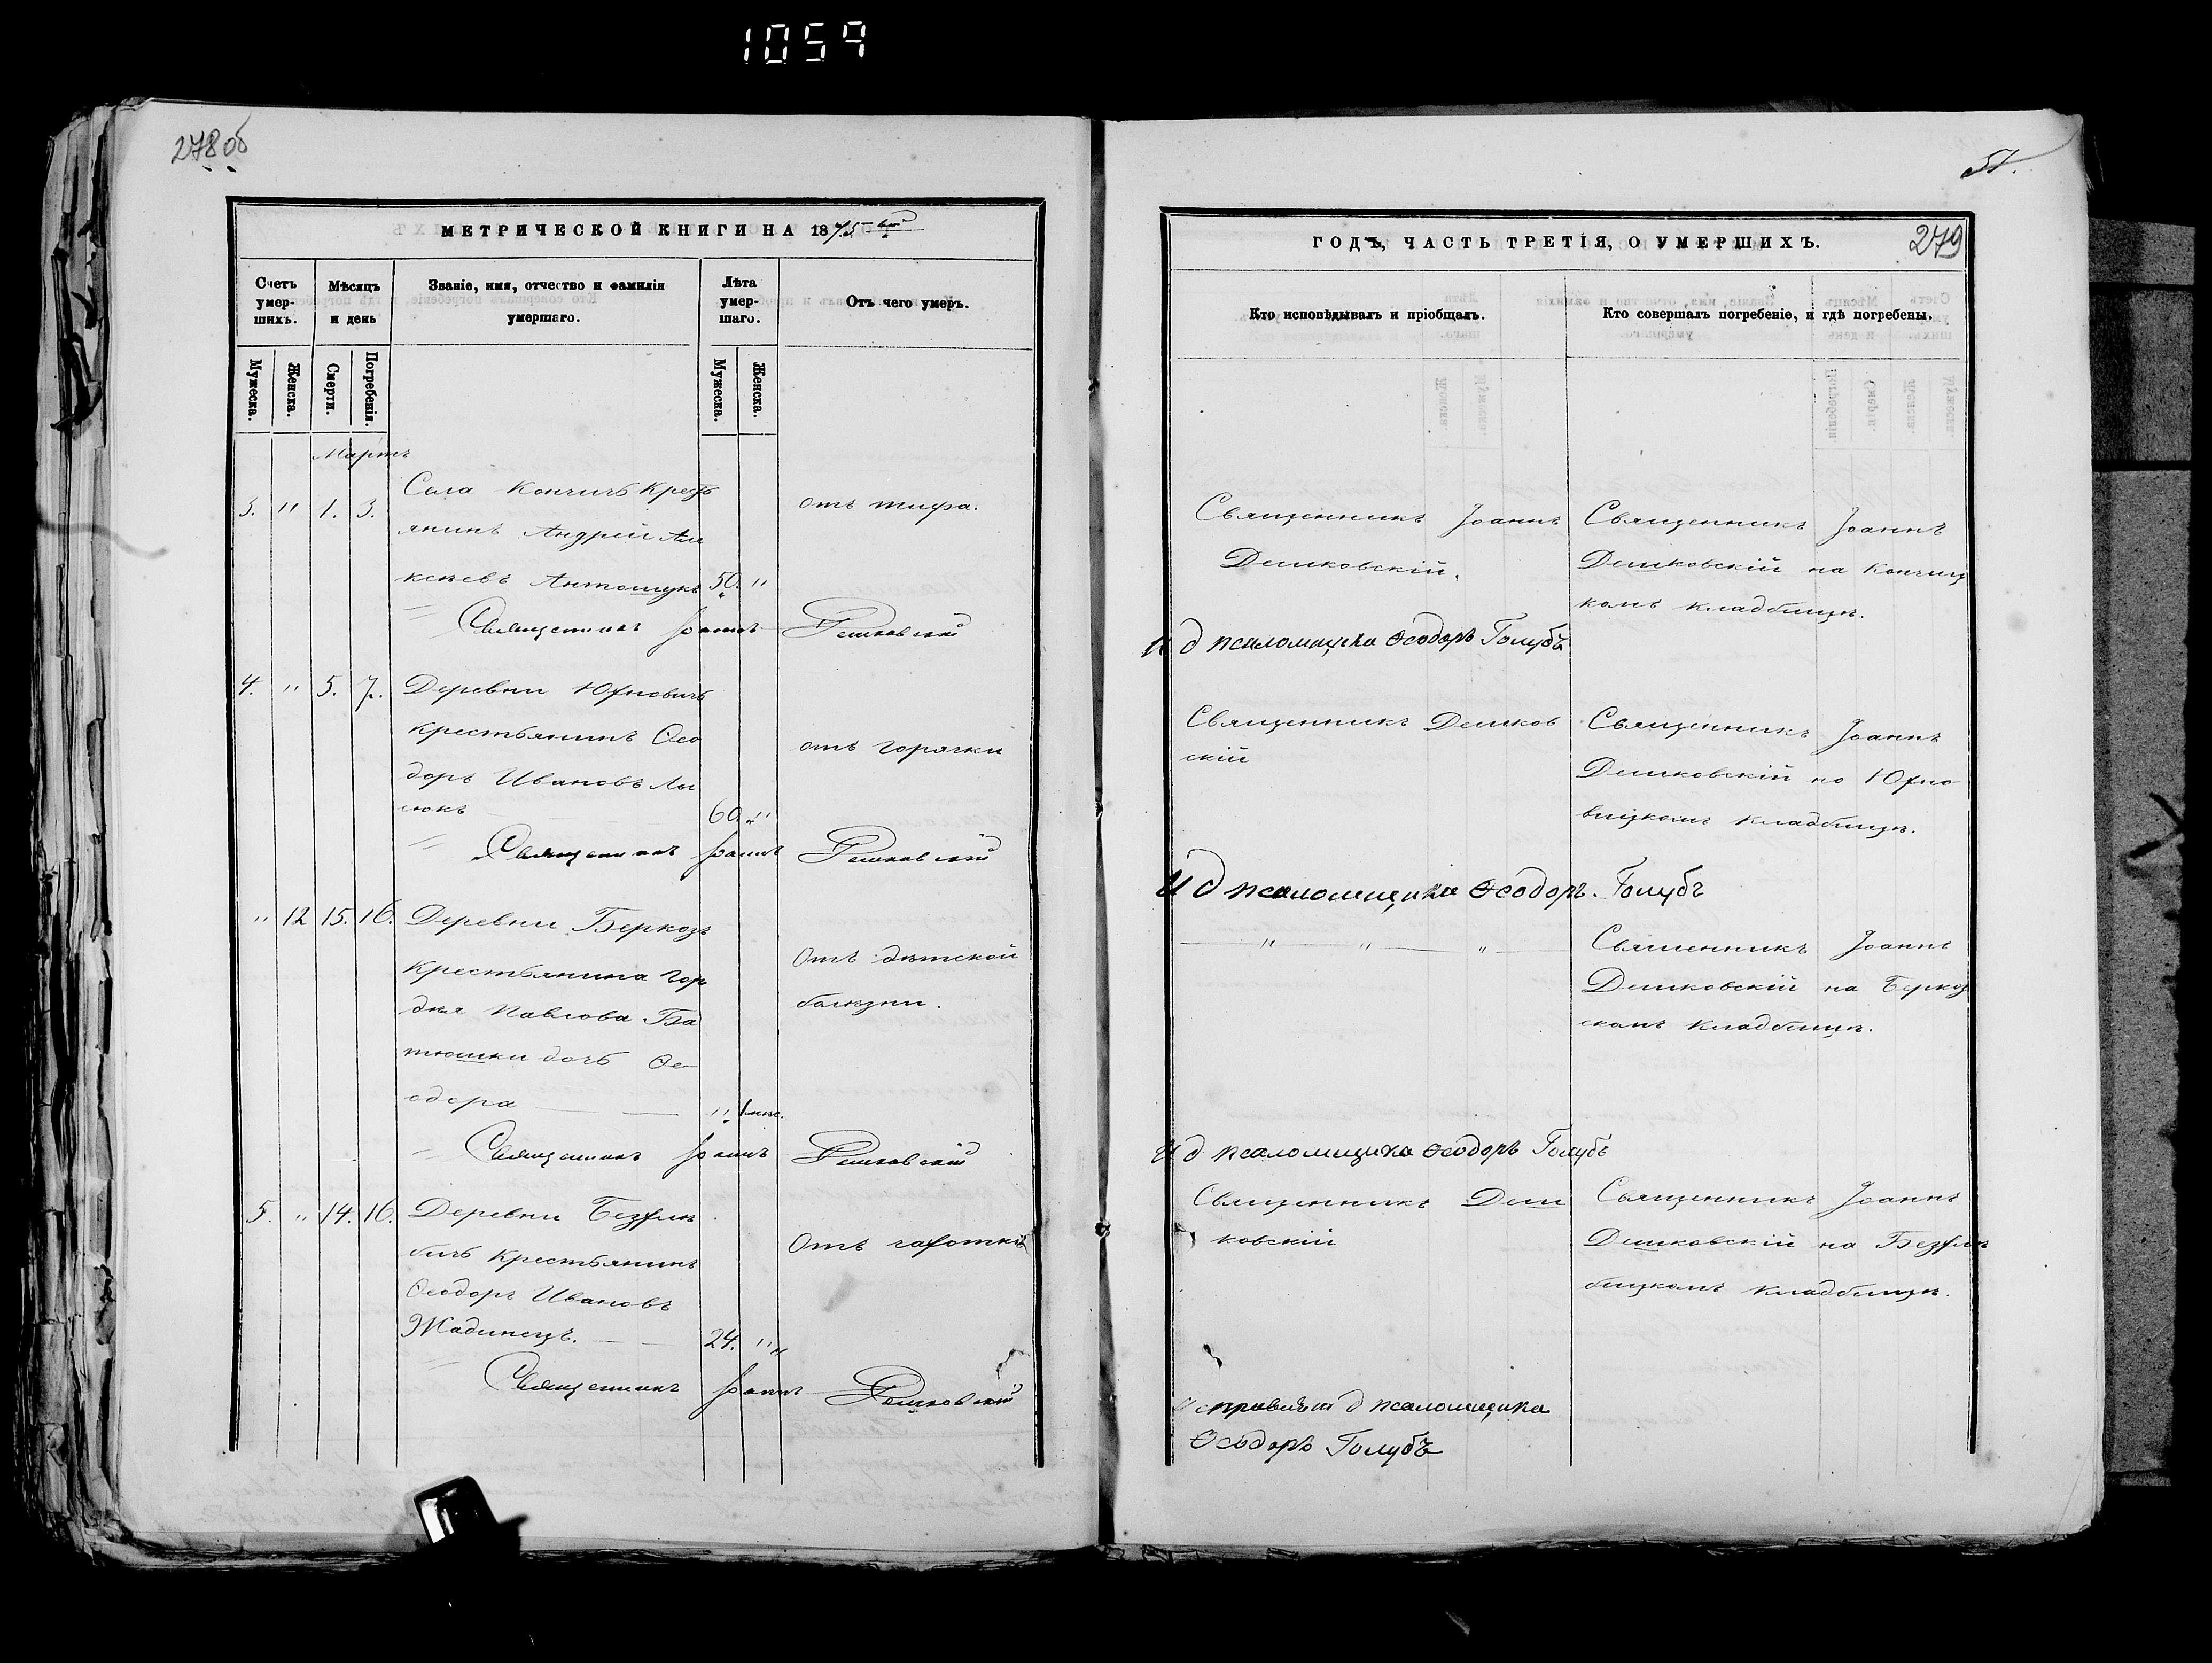 1059
278 об
МЕТРИЧЕСКОЙ КНИГИ НА 1875
Счетъ умер-шихъ.
Мѣсяцъ и день
Званіе, имя, отчество и фамилія умершаго.
Лѣта умер-шаго.
Отъ чего умеръ.
Мужеска.
Женска.
Смерти.
Погребенія.
Мужеска.
Женска.
Мартъ
3. " 1. 3. Села Кончичъ Крестъ
янинъ Андрей Але
ксѣевъ Антошукъ 50. "
отъ тифа.
Священникъ Іоаннъ Дешковскій
4. " 5. 7. Деревни Юхновичъ
крестьянинъ Ѳео
доръ Ивановъ Лы
сюкъ 60. "
отъ горячки
Священникъ Іоаннъ Дешковскій
" 12 15. 16. Деревни Беркозъ
крестьянина Гор
дѣя Павлова Ба
тюшки дочь Ѳе
одора " 1 мѣс.
Отъ дѣтской
болѣзни.
Священникъ Іоаннъ Дешковскій
5. " 14. 16. Деревни
бичъ крестьянинъ
Ѳеодоръ Ивановъ
Жадинецъ. 24. "
Отъ чахотки
Священникъ Іоаннъ Дешковскій
51.
279
ГОДЪ, ЧАСТЬ ТРЕТІЯ, О УМЕРШИХЪ.
Кто исповѣдывалъ и пріобщалъ.
Кто совершалъ погребеніе, и гдѣ погребены.
Священникъ Іоаннъ
Дешковскій.
Священникъ Іоаннъ
Дешковскій на Кончиц
комъ кладбищѣ.
И д псаломщика Ѳеодоръ Голубъ
Священникъ Дешков
скій
Священникъ Іоаннъ
Дешковскій на Юхно
вицкомъ кладбищѣ.
И д псаломщика Ѳеодоръ Голубъ
" " "
Священникъ Іоаннъ
Дешковскій на Беркоз
скомъ кладбищѣ.
И д псаломщика Ѳеодоръ Голубъ
Священникъ Деш
ковскій
Священникъ Іоаннъ
Дешковскій на
бицкомъ кладбищѣ.
д псаломщика
Ѳеодоръ Голубъ